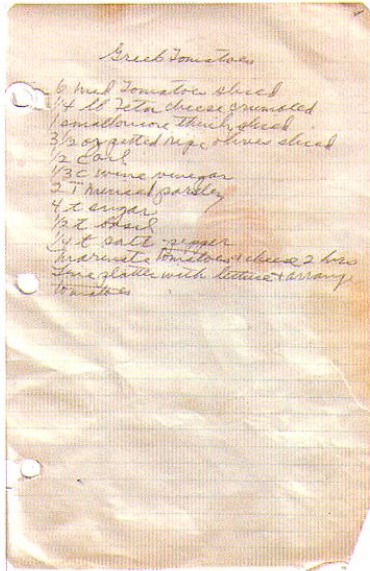 Greek Tomatoes
6 med Tomatoes sliced
1/4 lb Feta cheese crumbled
1 small onion thinly sliced
3 1/2 oz pitted ripe olives sliced
1/2 C oil
1/3 C wine vinegar
2 T minced parsley
4 t sugar
1/2 t basil
1/4 t salt - pepper
Marinate tomatoes & cheese 2 hrs
Line platter with lettuce & arrange
tomatoes